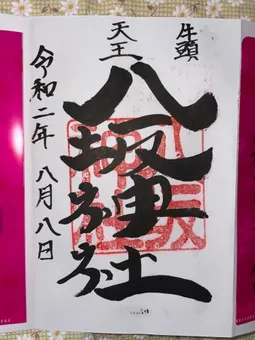 牛頭
天王
八坂神社
令和二年 八月八日
八坂
神社